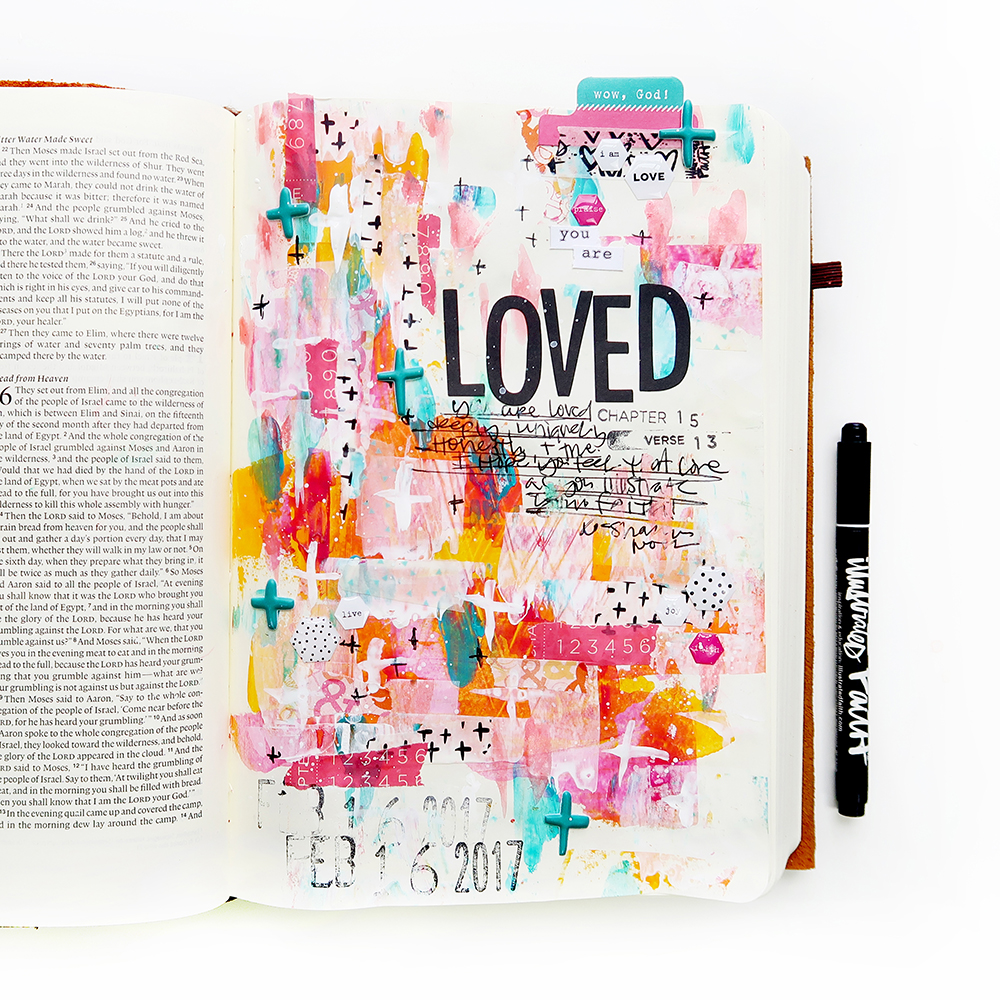 itter Water Made Sweet
22 Then Moses made Israel set out from the Red Sea,
nd they went into the wilderness of Shur. They went
hree days in the wilderness and found no water. 23 When
ey came to Marah, they could not drink the water of
arah because it was bitter; therefore it was named
arah. 24 And the people grumbled against Moses,
ying, "What shall we drink?" 25 And he cried to the
ORD, and the LORD showed him a log, and he threw it
to the water, and the water became sweet.
There the LORD made for them a statute and a rule,
nd there he tested them, 26 saying, "If you will diligently
ten to the voice of the LORD your God, and do that
hich is right in his eyes, and give ear to his command-
ents and keep all his statutes, I will put none of the
seases on you that I put on the Egyptians, for I am the
ORD, your healer."
27 Then they came to Elim, where there were twelve
rings of water and seventy palm trees, and they
camped there by the water.
ead from Heaven
6 They set out from Elim, and all the congregation
of the people of Israel came to the wilderness of
n, which is between Elim and Sinai, on the fifteenth
y of the second month after they had departed from
e land of Egypt. 2 And the whole congregation of the
eople of Israel grumbled against Moses and Aaron in
e wilderness, 3 and the people of Israel said to them,
Would that we had died by the hand of the LORD in
e land of Egypt, when we sat by the meat pots and ate
ead to the full, for you have brought us out into this
lderness to kill this whole assembly with hunger."
4 Then the LORD said to Moses, "Behold, I am about
rain bread from heaven for you, and the people shall
out and gather a day's portion every day, that I may
st them, whether they will walk in my law or not. 5 On
e sixth day, when they prepare what they bring in, it
ll be twice as much as they gather daily." 6 So Moses
d Aaron said to all the people of Israel, "At evening
u shall know that it was the LORD who brought you
t of the land of Egypt, 7 and in the morning you shall
e the glory of the LORD, because he has heard your
umbling against the LORD. For what are we, that you
umble against us?" 8 And Moses said, "When the LORD
ves you in the evening meat to eat and in the morning
ead to the full, because the LORD has heard your grum-
ing that you grumble against him—what are we?
ur grumbling is not against us but against the LORD."
9 Then Moses said to Aaron, "Say to the whole con-
egation of the people of Israel, 'Come near before the
ORD, for he has heard your grumbling.'" 10 And as soon
Aaron spoke to the whole congregation of the people
Israel, they looked toward the wilderness, and behold,
e glory of the LORD appeared in the cloud. 11 And the
ORD said to Moses, 12 "I have heard the grumbling of
e people of Israel. Say to them, 'At twilight you shall eat
eat, and in the morning you shall be filled with bread.
en you shall know that I am the LORD your God.'"
13 In the evening quail came up and covered the camp,
d in the morning dew lay around the camp. 14 And
wow, God!
i am
LOVE
praise
you
are
LOVED
you are loved
CHAPTER 15
deeply, uniquely
VERSE 13
Honestly + me.
I Hope you feel
as you illustrate
live
jo
123456
faith
&
123456
FEB 16 2017
FEB 16 2017
illustrated Faith
illustratedfaith.com